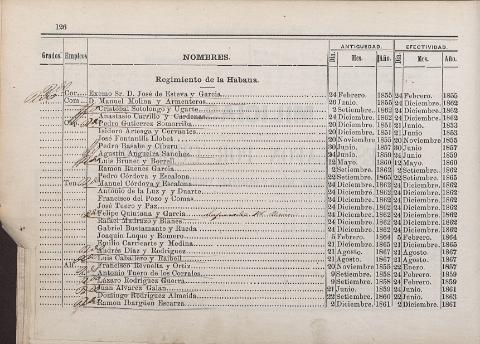 126
ANTIGUEDAD. EFECTIVIDAD.
Grados. Empleos NOMBRES. Dia Mes. Año. Dia Mes. Año.
Regimiento de la Habana.
Cor. Excmo Sr. D. José de Esteva y García 24 Febrero. 1855 24 Febrero. 1855
Com. D. Manuel Molina y Armenteros 26 Junio. 1855 24 Diciembre. 1862
Cristóbal Sotolongo y Ugarte 2 Setiembre. 1862 24 Diciembre. 1862
Anastasio Carrillo y Cárdenas 24 Diciembre. 1862 24 Diciembre. 1862
Pedro Gutierrez Somorriba 20 Diciembre. 1851 21 Junio. 1853
Isidoro Arteaga y Cervantes 21 Diciembre. 1851 21 Junio. 1853
José Fontanills Llobet 20 Noviembre 1855 20 Noviembre. 1855
Pedro Basabe y Cibaru 30 Junio. 1857 30 Junio. 1857
Agustin Angueira Sanchez 24 Junio. 1859 24 Junio. 1859
Luis Brunet y Borrell 12 Mayo. 1860 12 Mayo. 1860
Ramon Buenes García 2 Setiembre. 1862 2 Setiembre. 1862
Pedro Córdova y Escalona 22 Setiembre. 1865 22 Setiembre. 1865
Ten. Manuel Córdova y Escalona 24 Diciembre. 1862 24 Diciembre. 1862
Antonio de la Luz y Duarte 24 Diciembre. 1862 24 Diciembre. 1862
Francisco del Pozo y Comas 24 Diciembre. 1862 24 Diciembre. 1862
José Tuero y Paz 24 Diciembre. 1862 24 Diciembre. 1862
Felipe Quintana y García 24 Diciembre. 1862 24 Diciembre. 1862
Rafael Madrazo y Blanes 24 Diciembre. 1862 24 Diciembre. 1862
Gabriel Bustamante y Rueda 24 Diciembre. 1862 24 Diciembre. 1862
Joaquin Luque y Romero 5 Febrero. 1864 5 Febrero. 1864
Epifilio Carricarte y Medina 21 Diciembre. 1865 21 Diciembre. 1865
Andrés Diaz y Rodriguez 21 Agosto. 1867 21 Agosto. 1867
Luis Caballero y Raibell 21 Agosto. 1867 21 Agosto. 1867
Francisco Reynolta y Ortiz 20 Noviembre 1855 22 Enero. 1857
Antonio Tuero de los Corrales 9 Setiembre. 1858 24 Febrero. 1859
Lázaro Rodriguez Guerra 9 Setiembre. 1858 24 Febrero. 1859
Juan Alvarez Galan 21 Junio. 1859 24 Junio. 1861
Domingo Rodriguez Almeida 22 Setiembre. 1860 22 Junio. 1863
Ramon Ibargüen Escarza 2 Diciembre. 1861 2 Diciembre. 1861